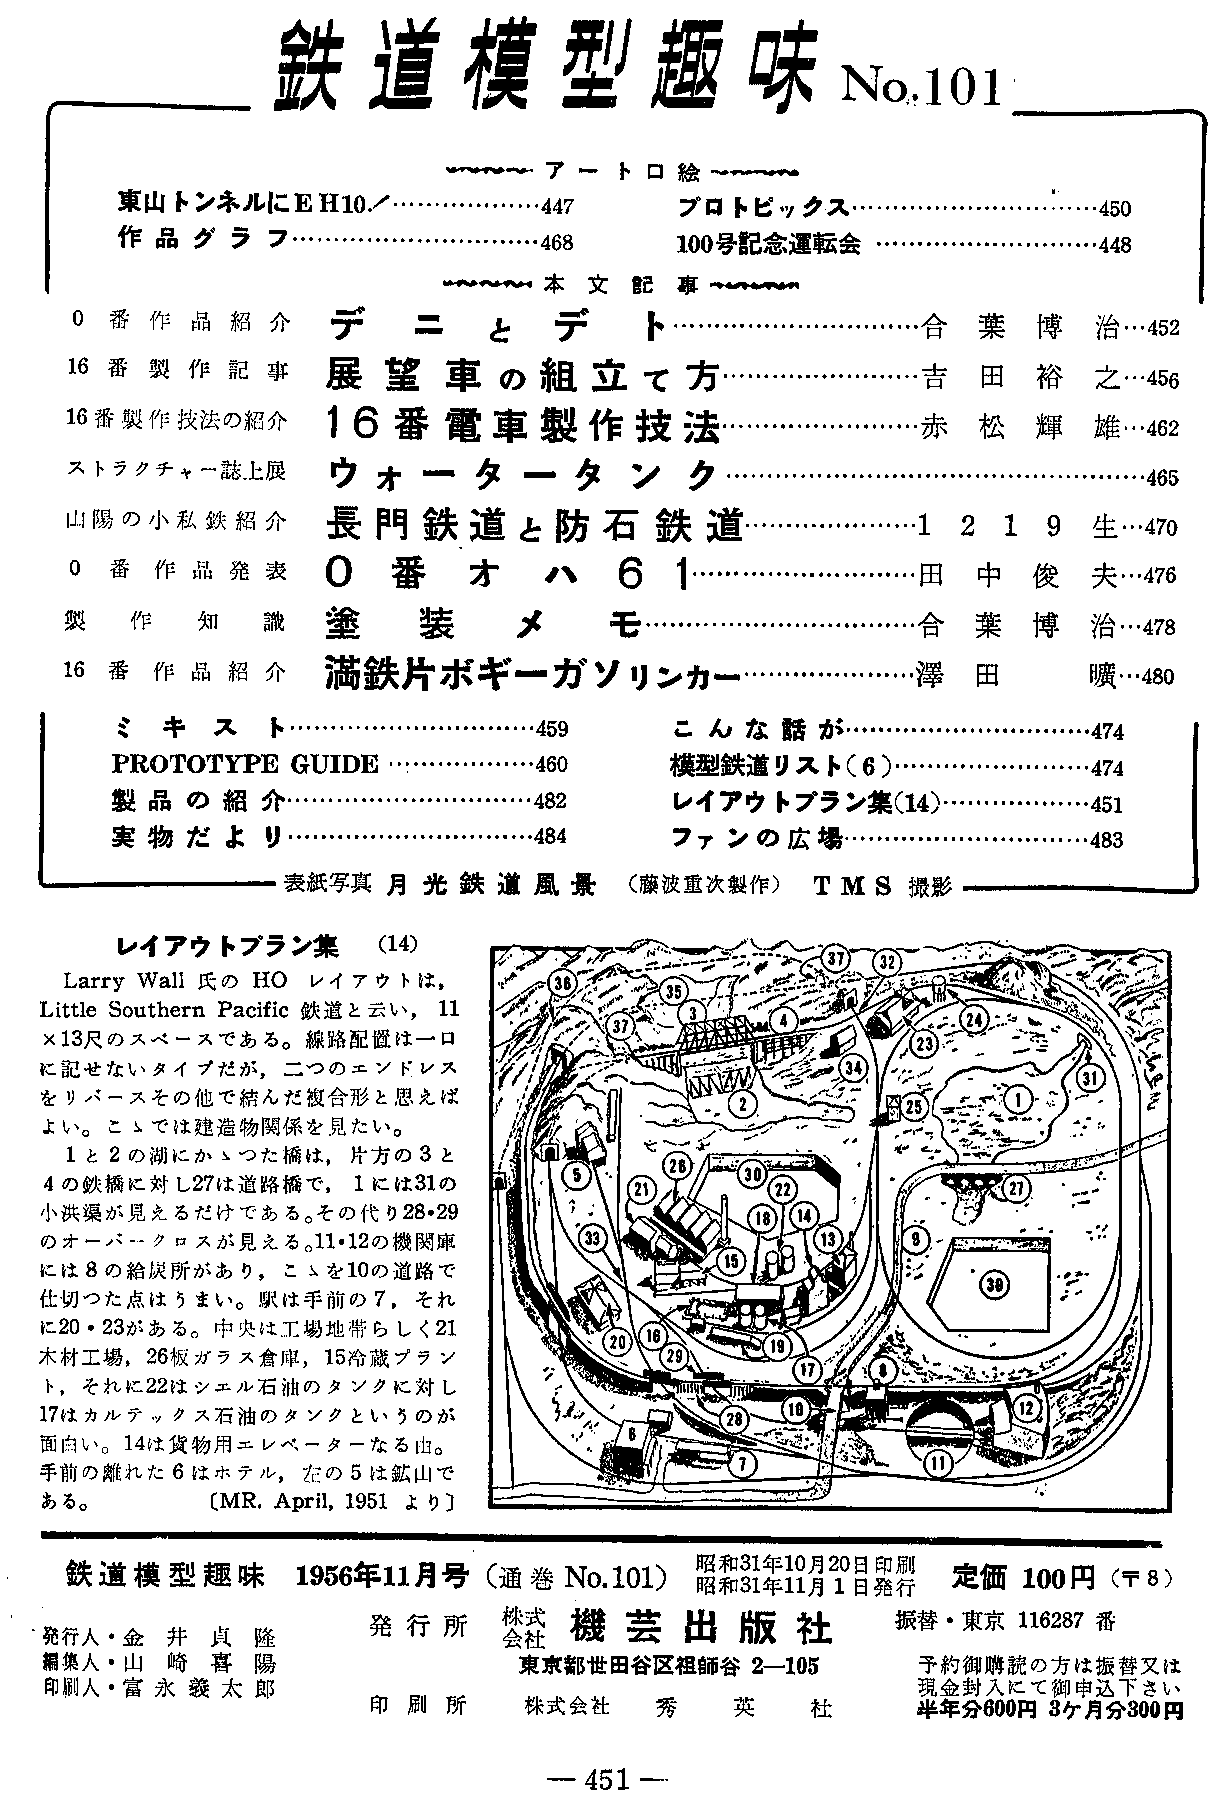 鉄道模型趣味 No.101
アート口絵
東山トンネルにEH10!………………447
プロトピックス…………………………450
作品グラフ…………………………468
100号記念運転会………………………448
本文記事
0番作品紹介 デニとデト…………………………合葉博治…452
16番製作記事 展望車の組立て方……………………吉田裕之…456
16番製作技法の紹介 16番電車製作技法……………………赤松輝雄…462
ストラクチャー誌上展 ウォータータンク……………………………………………465
山陽の小私鉄紹介 長門鉄道と防石鉄道…………………1219生…470
0番作品発表 0番オハ61………………………田中俊夫…476
製作知識 塗装メモ……………………………合葉博治…478
16番作品紹介 満鉄片ボギーガソリンカー…………………澤田曠…480
ミキスト…………………………459
こんな話が…………………………474
PROTOTYPE GUIDE………………460
模型鉄道リスト(6)……………………474
製品の紹介…………………………482
レイアウトプラン集(14)………………451
実物だより…………………………484
ファンの広場…………………………483
表紙写真 月光鉄道風景 (藤波重次製作) TMS 撮影
レイアウトプラン集 (14)
Larry Wall 氏の HO レイアウトは,
Little Southern Pacific 鉄道と云い, 11
×13尺のスペースである。線路配置は一口
に記せないタイプだが, 二つのエンドレス
をリバースその他で結んだ複合形と思えば
よい。こゝでは建造物関係を見たい。
1と2の湖にかゝつた橋は, 片方の3と
4の鉄橋に対し27は道路橋で, 1には31の
小洪渠が見えるだけである。その代り28・29
のオーバークロスが見える。11・12の機関庫
には8の給炭所があり, こゝを10の道路で
仕切つた点はうまい。駅は手前の7, それ
に20・23がある。中央は工場地帯らしく21
木材工場, 26板ガラス倉庫, 15冷蔵プラン
ト, それに22はシエル石油のタンクに対し
17はカルテックス石油のタンクというのが
面白い。14は貨物用エレベーターなる由。
手前の離れた6はホテル, 左の5は鉱山で
ある。 〔MR. April, 1951 より〕
36
35
37
3
4
37
32
24
23
34
31
2
25
1
5
26
30
22
21
27
18
14
33
13
9
15
39
20
16
19
29
17
8
10
12
28
6
7
11
鉄道模型趣味 1956年11月号 (通巻 No.101) 昭和31年10月20日印刷
昭和31年11月1日発行 定価 100円 (〒8)
発行所 株式会社 機芸出版社 振替・東京 116287 番
東京都世田谷区祖師谷 2—105
発行人・金井貞隆
編集人・山崎喜陽
印刷人・富永義太郎
印刷所 株式会社 秀英社
予約御購読の方は振替又は
現金封入にて御申込下さい
半年分600円 3ケ月分300円
— 451 —